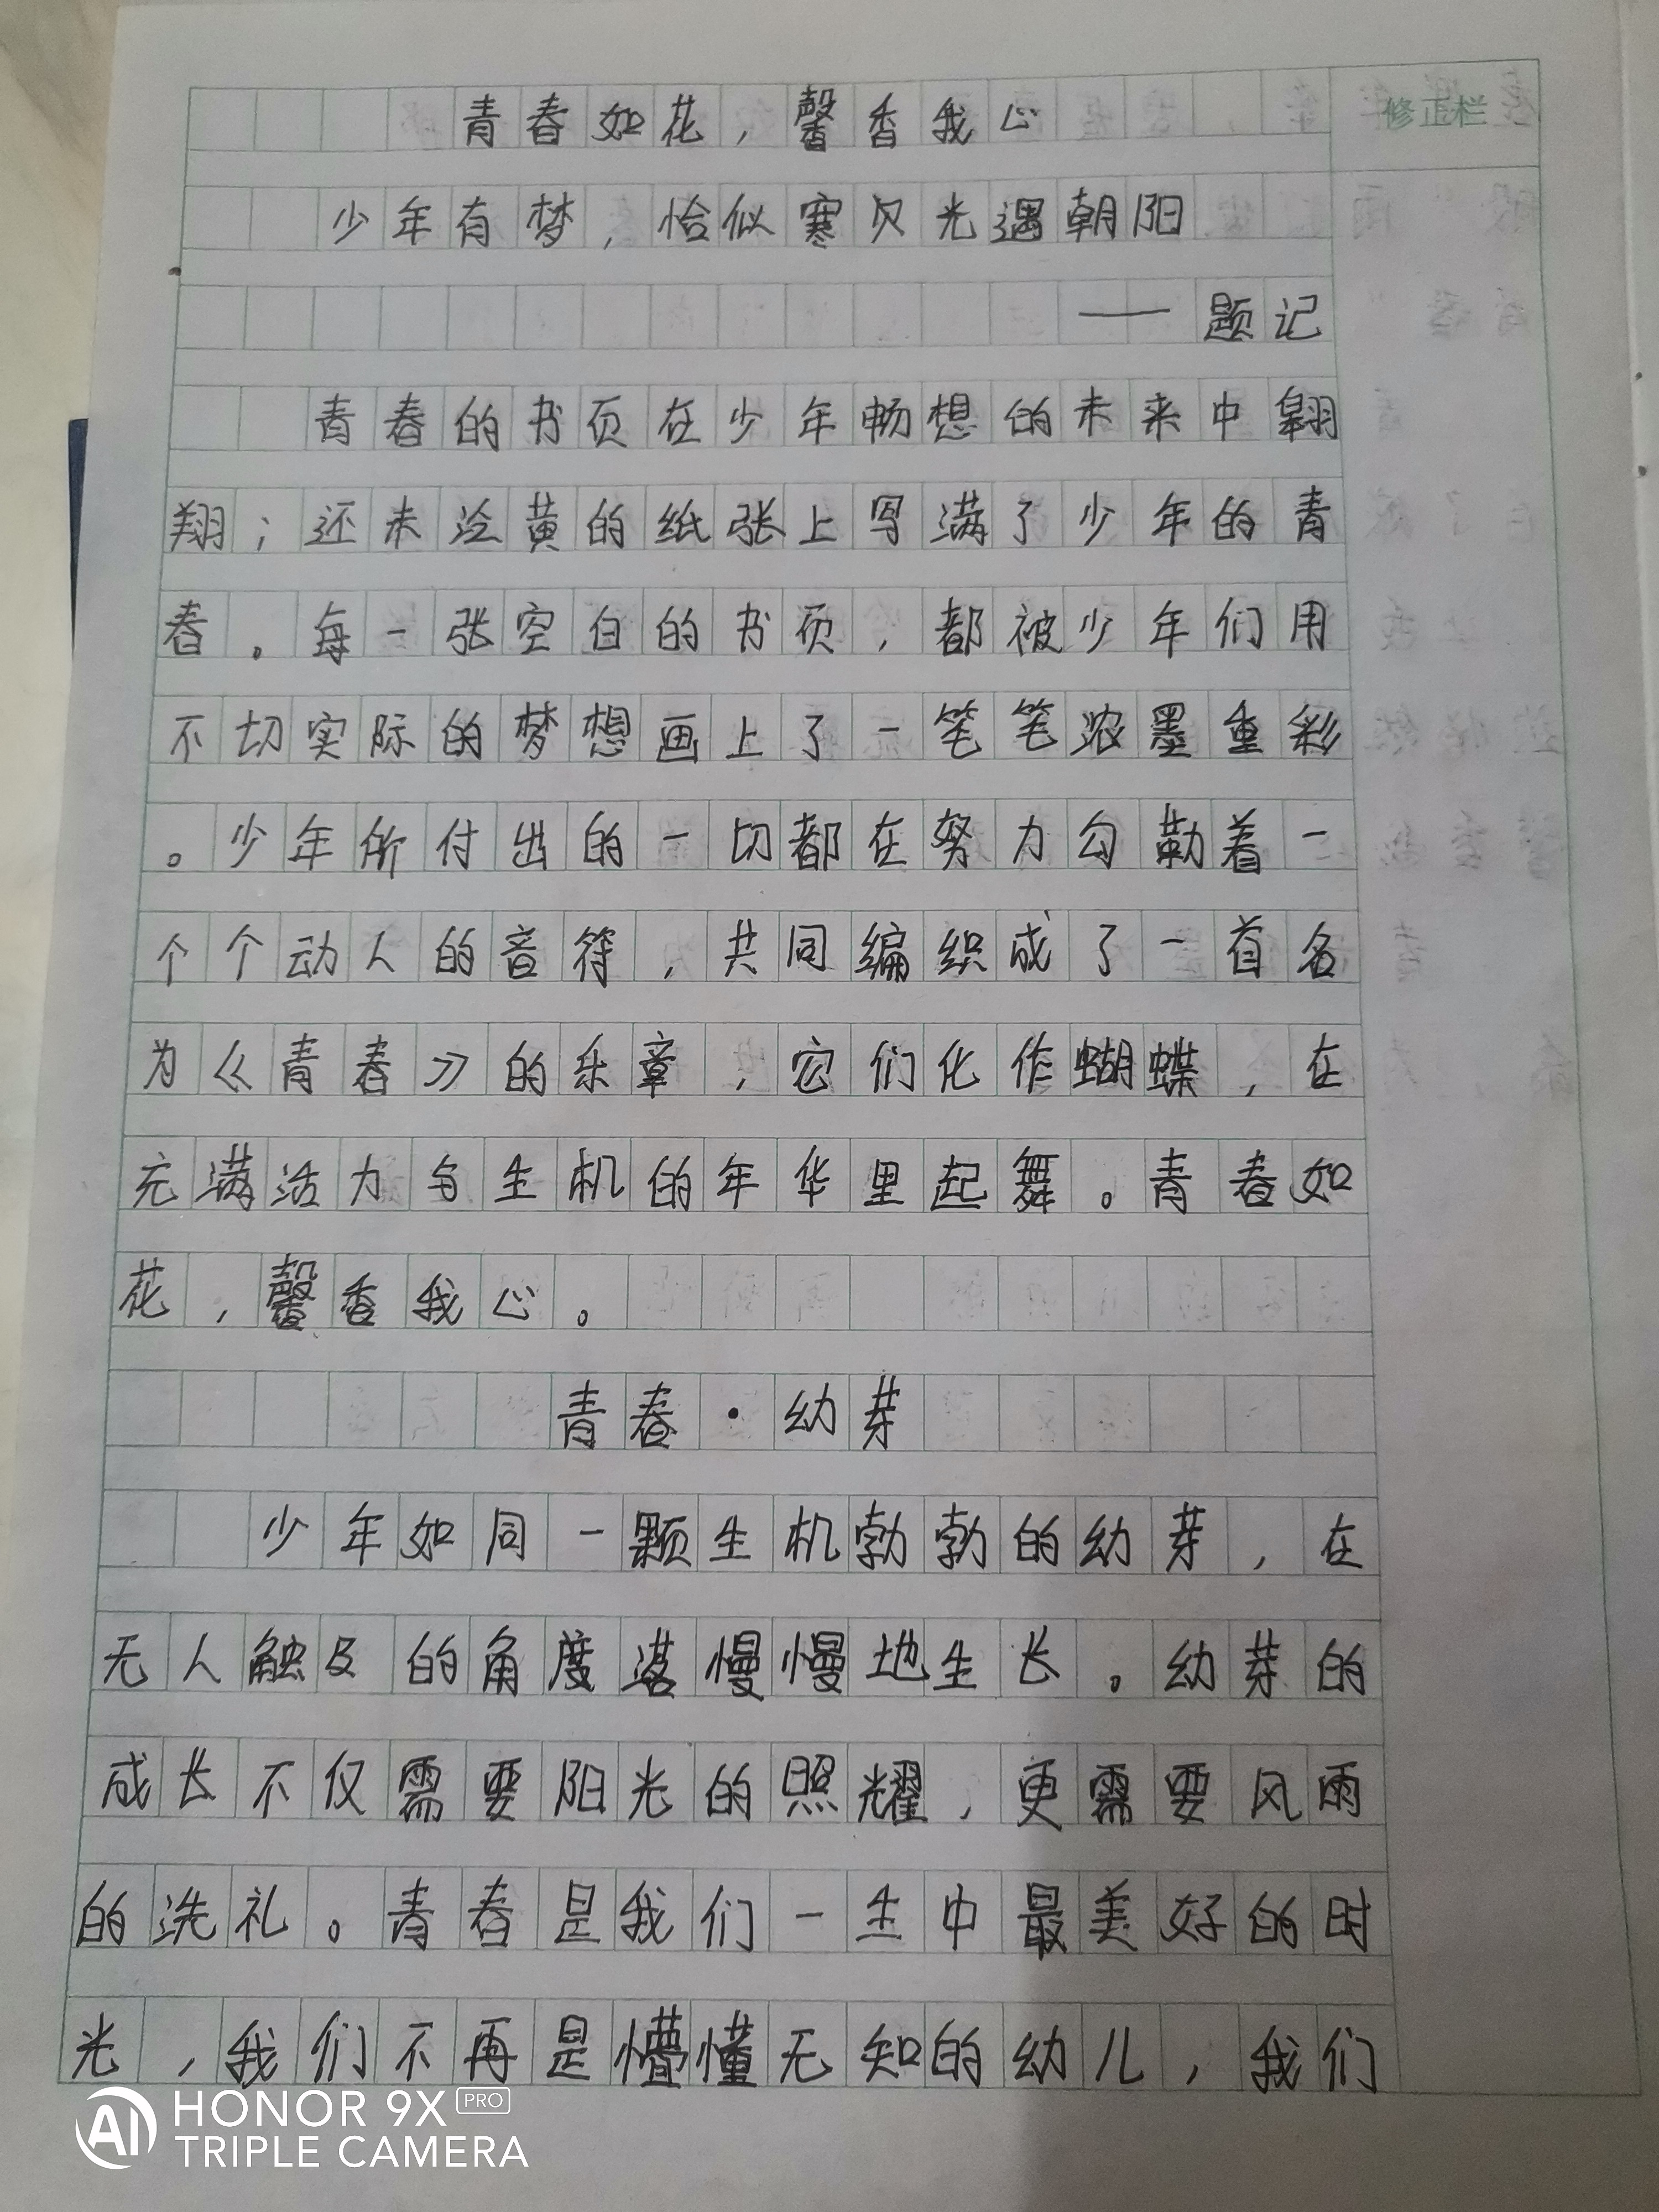 青春如花，馨香我心
修正栏
少年有梦，恰似寒夕光遇朝阳
——题记
青春的书页在少年畅想的未来中翱
翔；还未泛黄的纸张上写满了少年的青
春。每一张空白的书页，都被少年们用
不切实际的梦想画上了一笔笔浓墨重彩
。少年所付出的一切都在努力勾勒着一
个个动人的音符，共同编织成了一首名
为《青春》的乐章，它们化作蝴蝶，在
充满活力与生机的年华里起舞。青春如
花，馨香我心。
青春·幼芽
少年如同一颗生机勃勃的幼芽，在
无人触及的角度慢慢地生长。幼芽的
成长不仅需要阳光的照耀，更需要风雨
的洗礼。青春是我们一生中最美好的时
光，我们不再是懵懂无知的幼儿，我们
AI HONOR 9X PRO
TRIPLE CAMERA